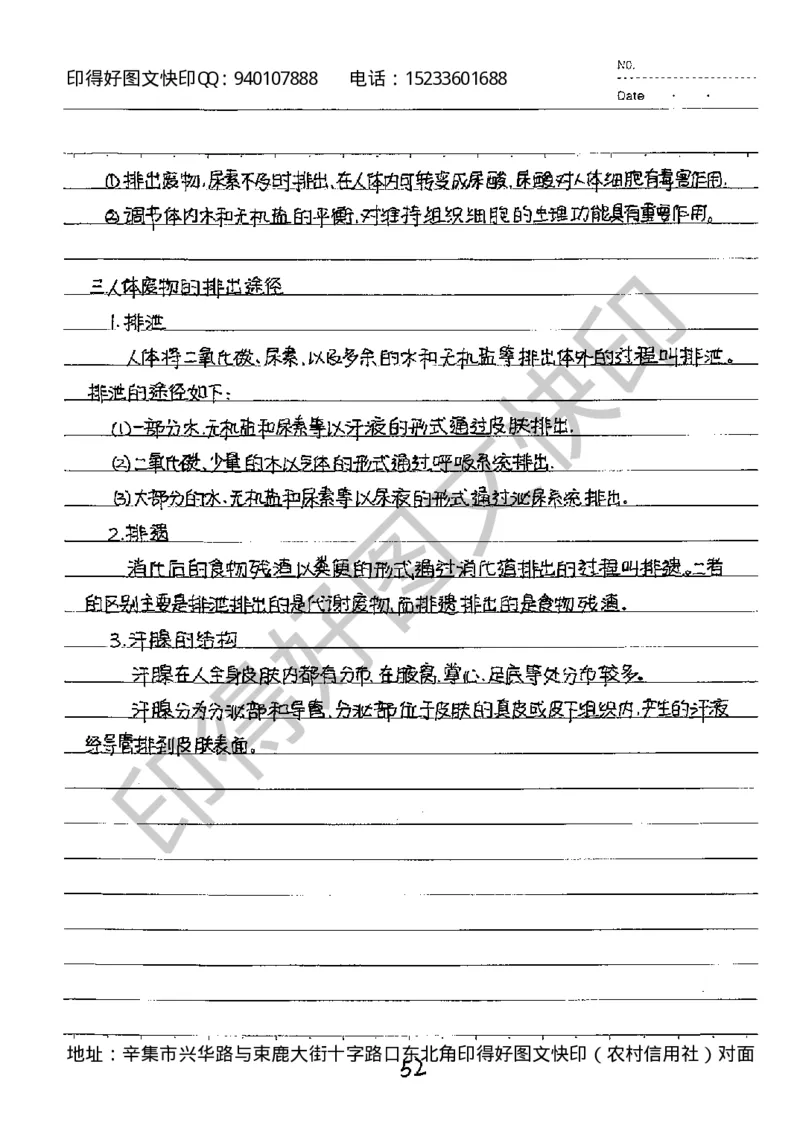 印得好图文快印QQ：940107888 电话：15233601688
NO.
Date · ·
①排出废物,尿素不及时排出,在人体内可转变成尿酸,尿酸对人体细胞有毒害作用.
②调节体内水和无机盐的平衡,对维持组织细胞的生理功能具有重要作用。
三人体废物的排出途径
1.排泄
人体将二氧化碳、尿素、以及多余的水和无机盐等排出体外的过程叫排泄。
排泄的途径如下：
(1)一部分水,无机盐和尿素等以汗液的形式通过皮肤排出.
(2)二氧化碳、少量的水以气体的形式通过呼吸系统排出.
(3)大部分的水、无机盐和尿素等以尿液的形式通过泌尿系统排出.
2.排遗
消化后的食物残渣以粪便的形式,通过消化道排出的过程叫排遗。二者
的区别主要是排泄排出的是代谢废物,而排遗排出的是食物残渣.
3.汗腺的结构
汗腺在人全身皮肤内都有分布,在腋窝,掌心,足底等处分布较多。
汗腺分为分泌部和导管,分泌部位于皮肤的真皮或皮下组织内,产生的汗液
经导管排到皮肤表面。
印得好图文快印
地址：辛集市兴华路与束鹿大街十字路口东北角印得好图文快印（农村信用社）对面
52